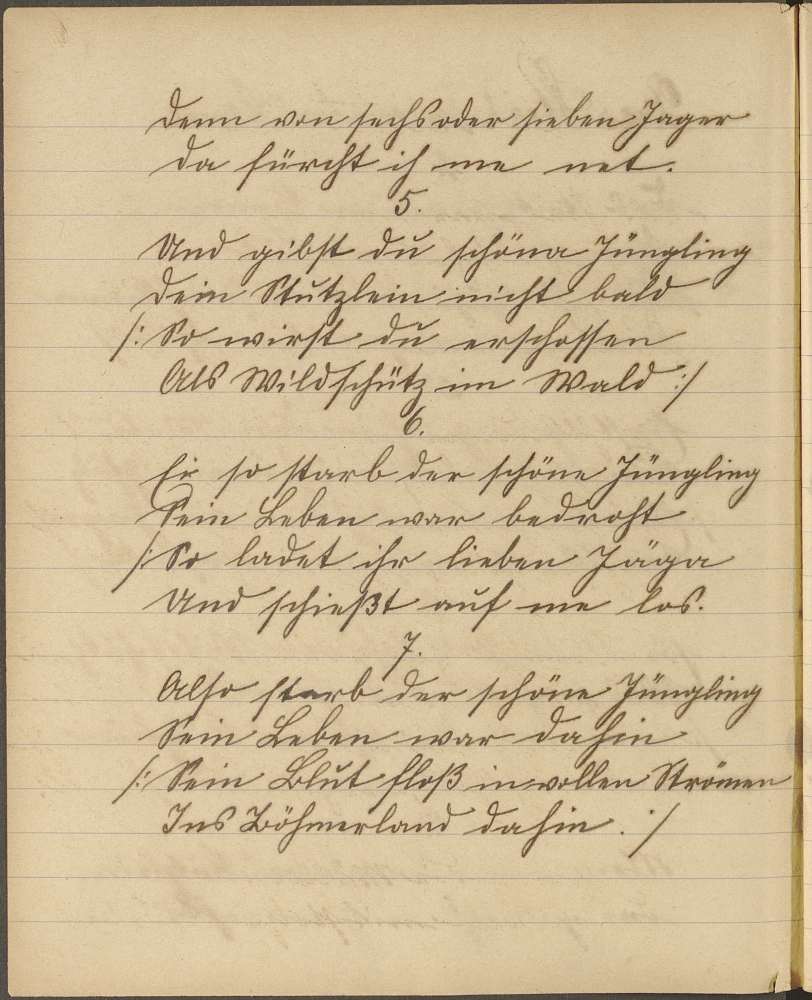 Denn von sechs oder sieben Jager
Da fürcht ich me net.
5.
Und gibst du schöna Jüngling
Dein Stutzlein nicht bald
/: So wirst du erschossen
Als Wildschütz im Wald :/
6.
Ei so starb der schöne Jüngling
Sein Leben war bedroht
/: So ladet ihr lieben Jäga
Und schießt auf me los.
7.
Also starb der schöne Jüngling
Sein Leben war dahin
/: Sein Blut floß in vollen Strömen
Ins Böhmerland dahin. :/